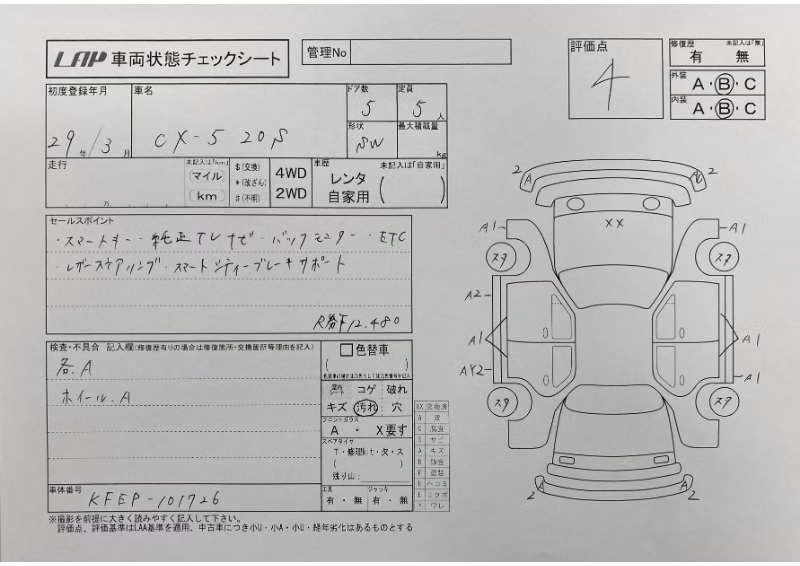 LAP 車両状態チェックシート
管理No
評価点
4
修復歴 未記入は「無」
有 無
外装 A・B・C
内装 A・B・C
初度登録年月 車名 ドア数 定員
29年/3月 CX-5 20S 5 5人
形状 最大積載量
SW kg
走行 未記入は「km」 $(交換) 4WD 車歴 未記入は「自家用」
万 (マイル) *(改ざん) 2WD レンタ
(km) #(不明) 自家用 ( )
セールスポイント
・スマートキー・純正TVナビ・バックモニター・ETC
・レザーステアリング・スマートシティーブレーキサポート
R券下12.480
検査・不具合 記入欄(修復歴有りの場合は修復箇所・交換箇所等理由を記入)
各.A
ホイール.A
色替車
( )
コゲ 破れ
キズ 汚れ 穴
フロントガラス
A ・ X要す
スペアタイヤ
T・修理kt・欠・ス
( )
残り山:
工具 ジャッキ
有・無 有・無
車体番号
KFEP-101726
※撮影を前提に大きく読みやすく記入して下さい。
評価点、評価基準はLAA基準を適用、中古車につき小U・小A・小G・経年劣化はあるものとする
2 A 2
XX
A1 A1
スタ スタ
A2
A1 A1
AY2 A1
スタ スタ
2 A A 2